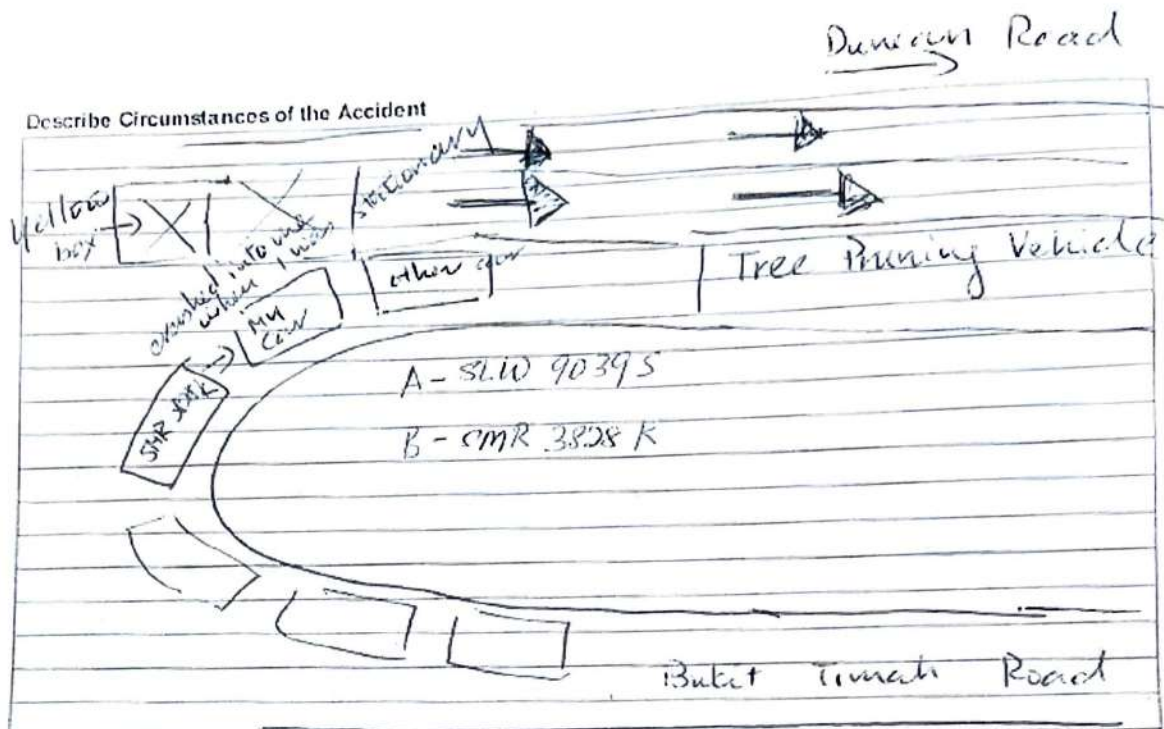 Duncan Road
Describe Circumstances of the Accident
Yellow
box
crashed into me
when I was
stationary
My
Car
other car
Tree Pruning Vehicle
SMR 3828K
A - SLW 9039S
B - SMR 3828K
Bukit Timah Road